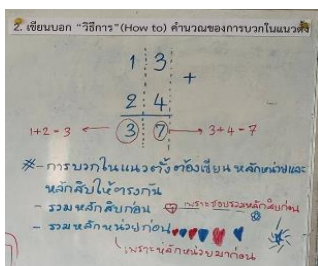 2. เขียนบอก "วิธีการ"(How to) คำนวณของการบวกในแนวตั้ง
1 3 +
2 4
1+2=3 ← 3 7 → 3+4=7
*-การบวกในแนวตั้งต้องเขียนหลักหน่วยและ
หลักสิบให้ตรงกัน
- รวมหลักสิบก่อน เพราะชอบรวมหลักสิบก่อน
- รวมหลักหน่วยก่อน
เพราะหลักหน่วยมาก่อน